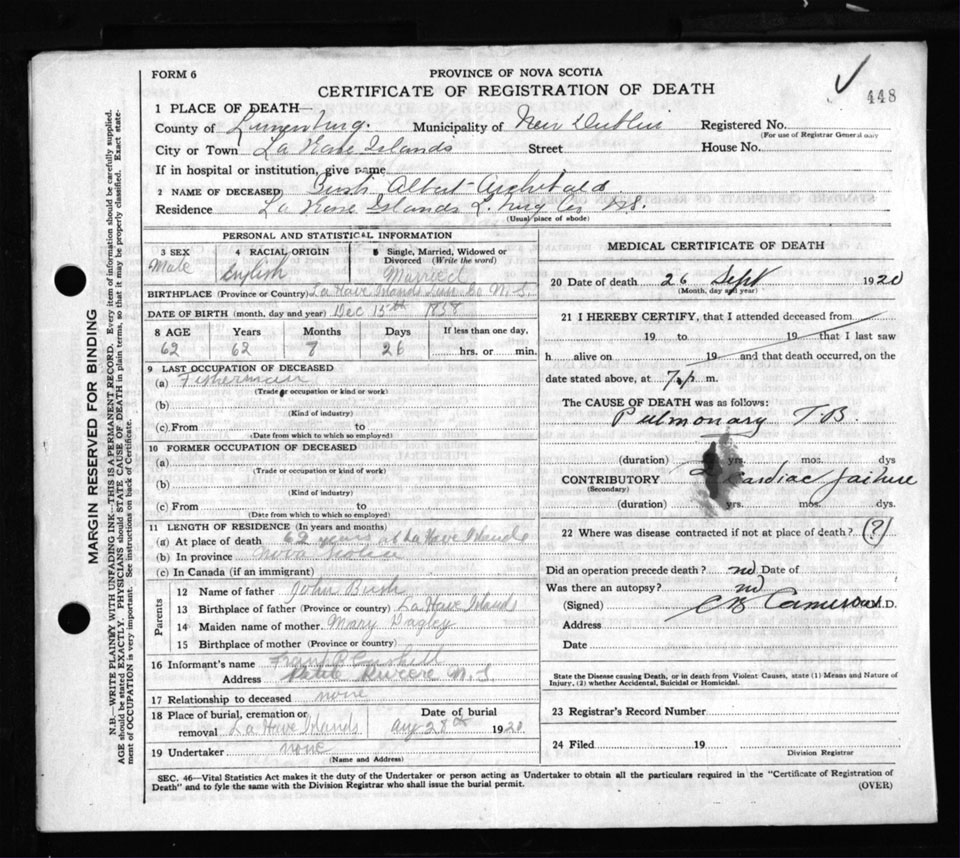 FORM 6
PROVINCE OF NOVA SCOTIA
CERTIFICATE OF REGISTRATION OF DEATH
448
1 PLACE OF DEATH—
County of Lunenburg. Municipality of New Dublin Registered No.
(For use of Registrar General only
City or Town La Have Islands Street House No.
If in hospital or institution, give name
2 NAME OF DECEASED) Bush Albert Archibald.
Residence La Have Islands L. burg Co NS.
(Usual place of abode)
PERSONAL AND STATISTICAL INFORMATION
3 SEX
Male
4 RACIAL ORIGIN
English
5 Single, Married, Widowed or Divorced (Write the word)
Married
BIRTHPLACE (Province or Country) La Have Islands Lun. Co N. S.
DATE OF BIRTH (month, day and year) Dec 15th 1858
8 AGE Years Months Days If less than one day,
62 62 7 26 hrs. or min.
9 LAST OCCUPATION OF DECEASED
(a) Fisherman
(Trade or occupation or kind or work)
(b)
(Kind of industry)
(c) From to
(Date from which to which so employed)
10 FORMER OCCUPATION OF DECEASED
(a)
(Trade or occupation or kind of work)
(b)
(Kind of industry)
(c) From to
(Date from which to which so employed)
11 LENGTH OF RESIDENCE (In years and months)
(a) At place of death 62 years at La Have Islands
(b) In province Nova Scotia
(c) In Canada (if an immigrant)
Parents
12 Name of father John Bush
13 Birthplace of father (Province or country) La Have Islands
14 Maiden name of mother. Mary Pagley
15 Birthplace of mother (Province or country)
16 Informant's name
Address Petite Riviere N. S.
17 Relationship to deceased none
18 Place of burial, cremation or removal La Have Islands
Date of burial
Aug 28th 1920
19 Undertaker none
(Name and Address)
MEDICAL CERTIFICATE OF DEATH
20 Date of death 26 Sept 1920
(Month, day and year)
21 I HEREBY CERTIFY, that I attended deceased from
19 to 19 that I last saw
h alive on 19 and that death occurred, on the
date stated above, at 7 p m.
The CAUSE OF DEATH was as follows:
Pulmonary TB.
(duration) yrs. mos. dys
CONTRIBUTORY Cardiac failure
(Secondary)
(duration) yrs. mos. dys.
22 Where was disease contracted if not at place of death? (?)
Did an operation precede death? no Date of
Was there an autopsy? no
(Signed) Cameron M.D.
Address
Date
State the Disease causing Death, or in death from Violent Causes, state (1) Means and Nature of Injury, (2) whether Accidental, Suicidal or Homicidal.
23 Registrar's Record Number
24 Filed 19
Division Registrar
SEC. 46—Vital Statistics Act makes it the duty of the Undertaker or person acting as Undertaker to obtain all the particulars required in the "Certificate of Registration of
Death" and to fyle the same with the Division Registrar who shall issue the burial permit. (OVER)
MARGIN RESERVED FOR BINDING
N.B.—WRITE PLAINLY WITH UNFADING INK—THIS IS A PERMANENT RECORD. Every item of information should be carefully supplied.
AGE should be stated EXACTLY. PHYSICIANS should STATE CAUSE OF DEATH in plain terms, so that it may be properly classified. Exact statement of OCCUPATION is very important. See instructions on back of Certificate.